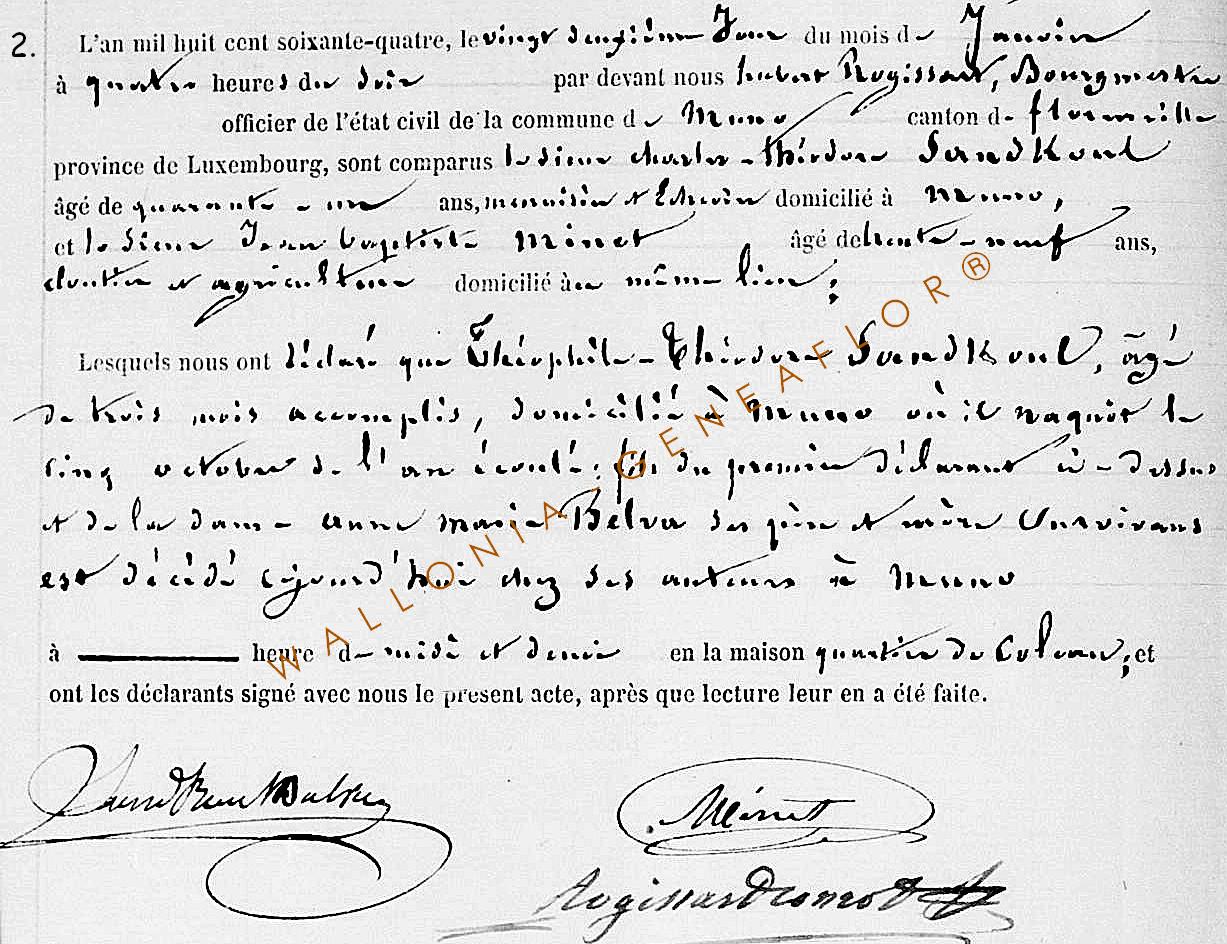 2. L'an mil huit cent soixante-quatre, le vingt deuxième Jour du mois de Janvier
à quatre heures du soir par devant nous hubert Rogissart, Bourgmestre
officier de l'état civil de la commune de Muno canton de florenville
province de Luxembourg, sont comparus le sieur charles-théodore SandKoul
âgé de quarante-un ans, menuisier et Echevin domicilié à Muno,
et le Sieur Jean baptiste Minet âgé de trente-neuf ans,
cloutier et agriculteur domicilié au même lieu;
Lesquels nous ont déclaré que Théophile-Théodore SandKoul, âgé
de trois mois accomplis, domicilié à Muno où il naquit le
cinq octobre de l'an écoulé; fils du premier déclarant ci-dessus
et de la dame anne marie Belva ses père et mère survivans
est décédé cejourd'hui chez ses auteurs à Muno
à heure de midi et demie en la maison quartier de ; et
ont les déclarants signé avec nous le présent acte, après que lecture leur en a été faite.
Minet
Rogissart
WALLONIA-GENEAFLOR®